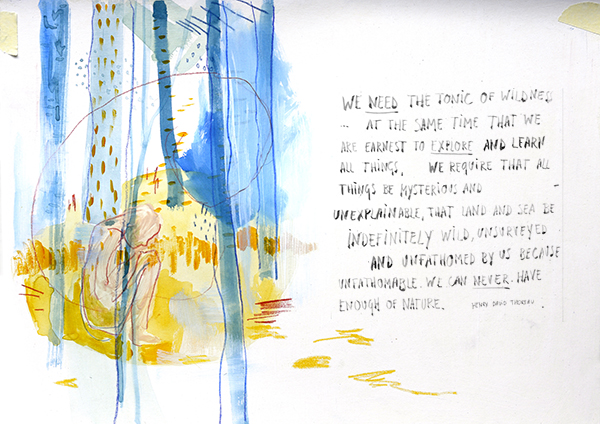 WE NEED THE TONIC OF WILDNESS
... AT THE SAME TIME THAT WE
ARE EARNEST TO EXPLORE AND LEARN
ALL THINGS, WE REQUIRE THAT ALL
THINGS BE MYSTERIOUS AND
UNEXPLAINABLE, THAT LAND AND SEA BE
INDEFINITELY WILD, UNSURVEYED
AND UNFATHOMED BY US BECAUSE
UNFATHOMABLE. WE CAN NEVER HAVE
ENOUGH OF NATURE. HENRY DAVID THOREAU